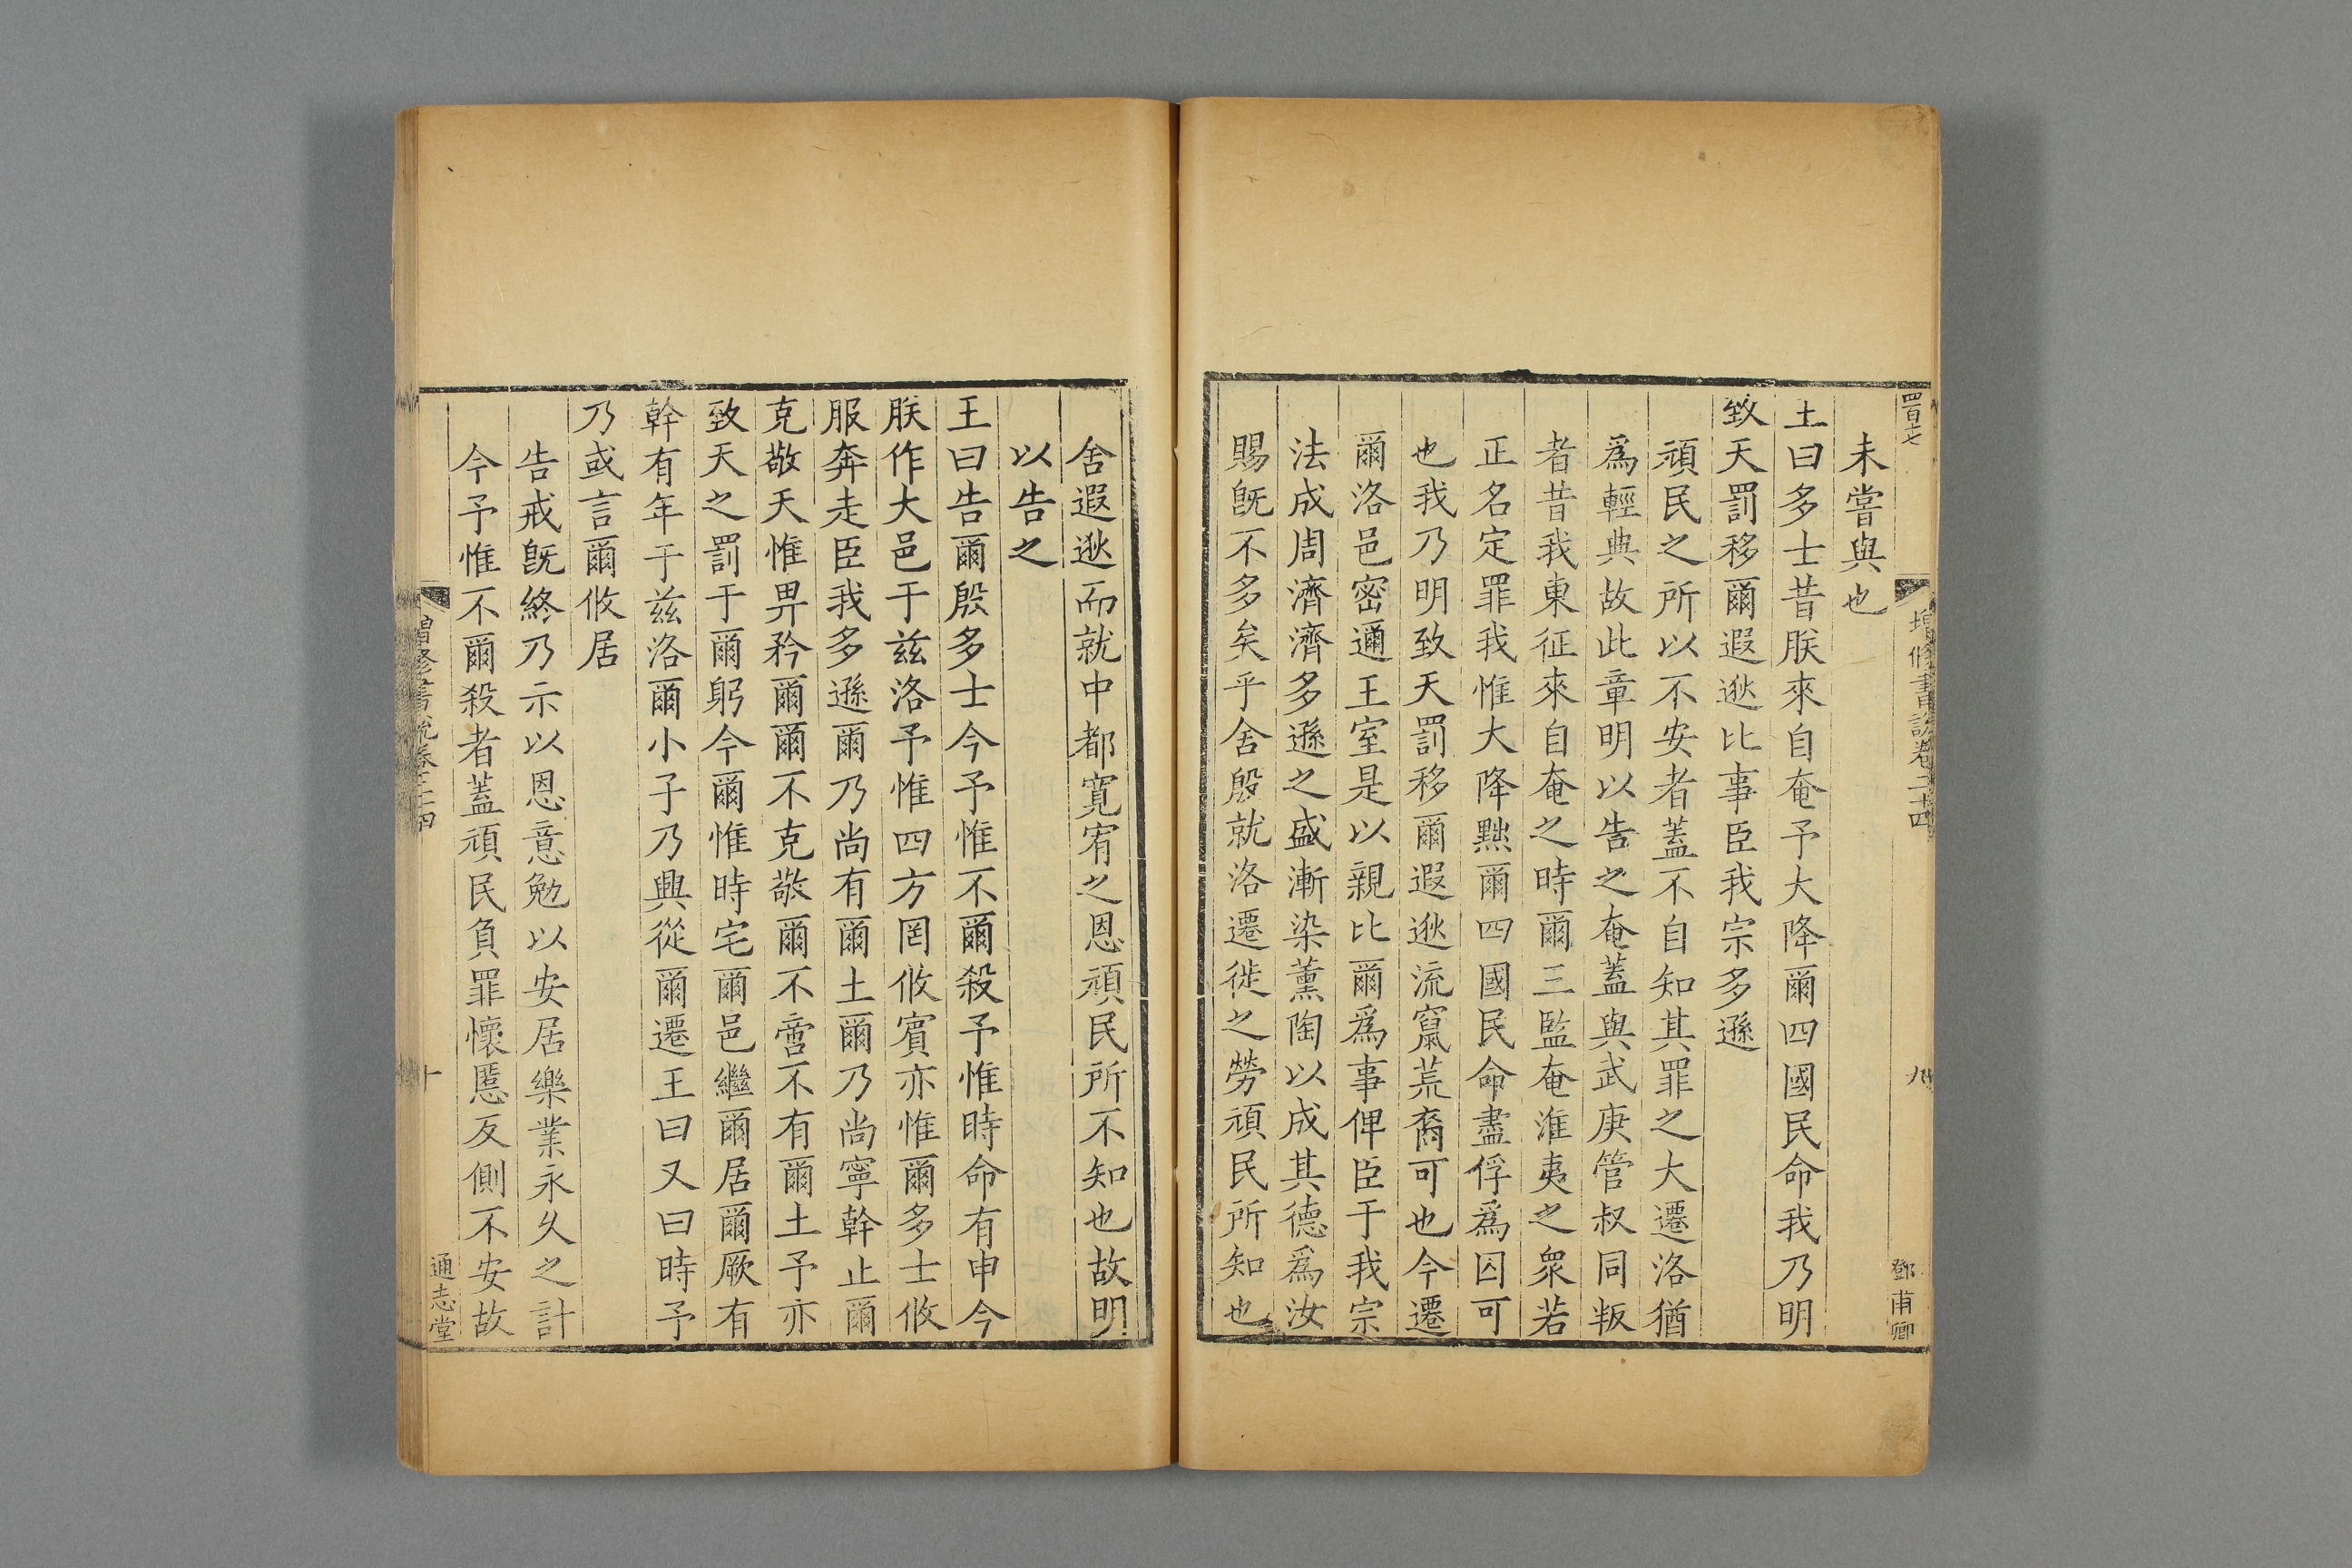 四百七
增修書說卷二十四
九
鄧甫卿
未嘗與也
王曰多士昔朕來自奄予大降爾四國民命我乃明
致天罰移爾遐逖比事臣我宗多遜
頑民之所以不安者蓋不自知其罪之大遷洛猶
爲輕典故此章明以告之奄蓋與武庚管叔同叛
者昔我東征來自奄之時爾三監奄淮夷之衆若
正名定罪我惟大降黜爾四國民命盡俘爲囚可
也我乃明致天罰移爾遐逖流竄荒裔可也今遷
爾洛邑密邇王室是以親比爾爲事俾臣于我宗
法成周濟濟多遜之盛漸染薰陶以成其德爲汝
賜旣不多矣乎舍殷就洛遷徙之勞頑民所知也
舍遐逖而就中都寬宥之恩頑民所不知也故明
以告之
王曰告爾殷多士今予惟不爾殺予惟時命有申今
朕作大邑于茲洛予惟四方罔攸賓亦惟爾多士攸
服奔走臣我多遜爾乃尚有爾土爾乃尚寧幹止爾
克敬天惟畀矜爾爾不克敬爾不啻不有爾土予亦
致天之罰于爾躬今爾惟時宅爾邑繼爾居爾厥有
幹有年于茲洛爾小子乃興從爾遷王曰又曰時予
乃或言爾攸居
告戒旣終乃示以恩意勉以安居樂業永久之計
今予惟不爾殺者蓋頑民負罪懷慝反側不安故
增修書說卷二十四
十
通志堂